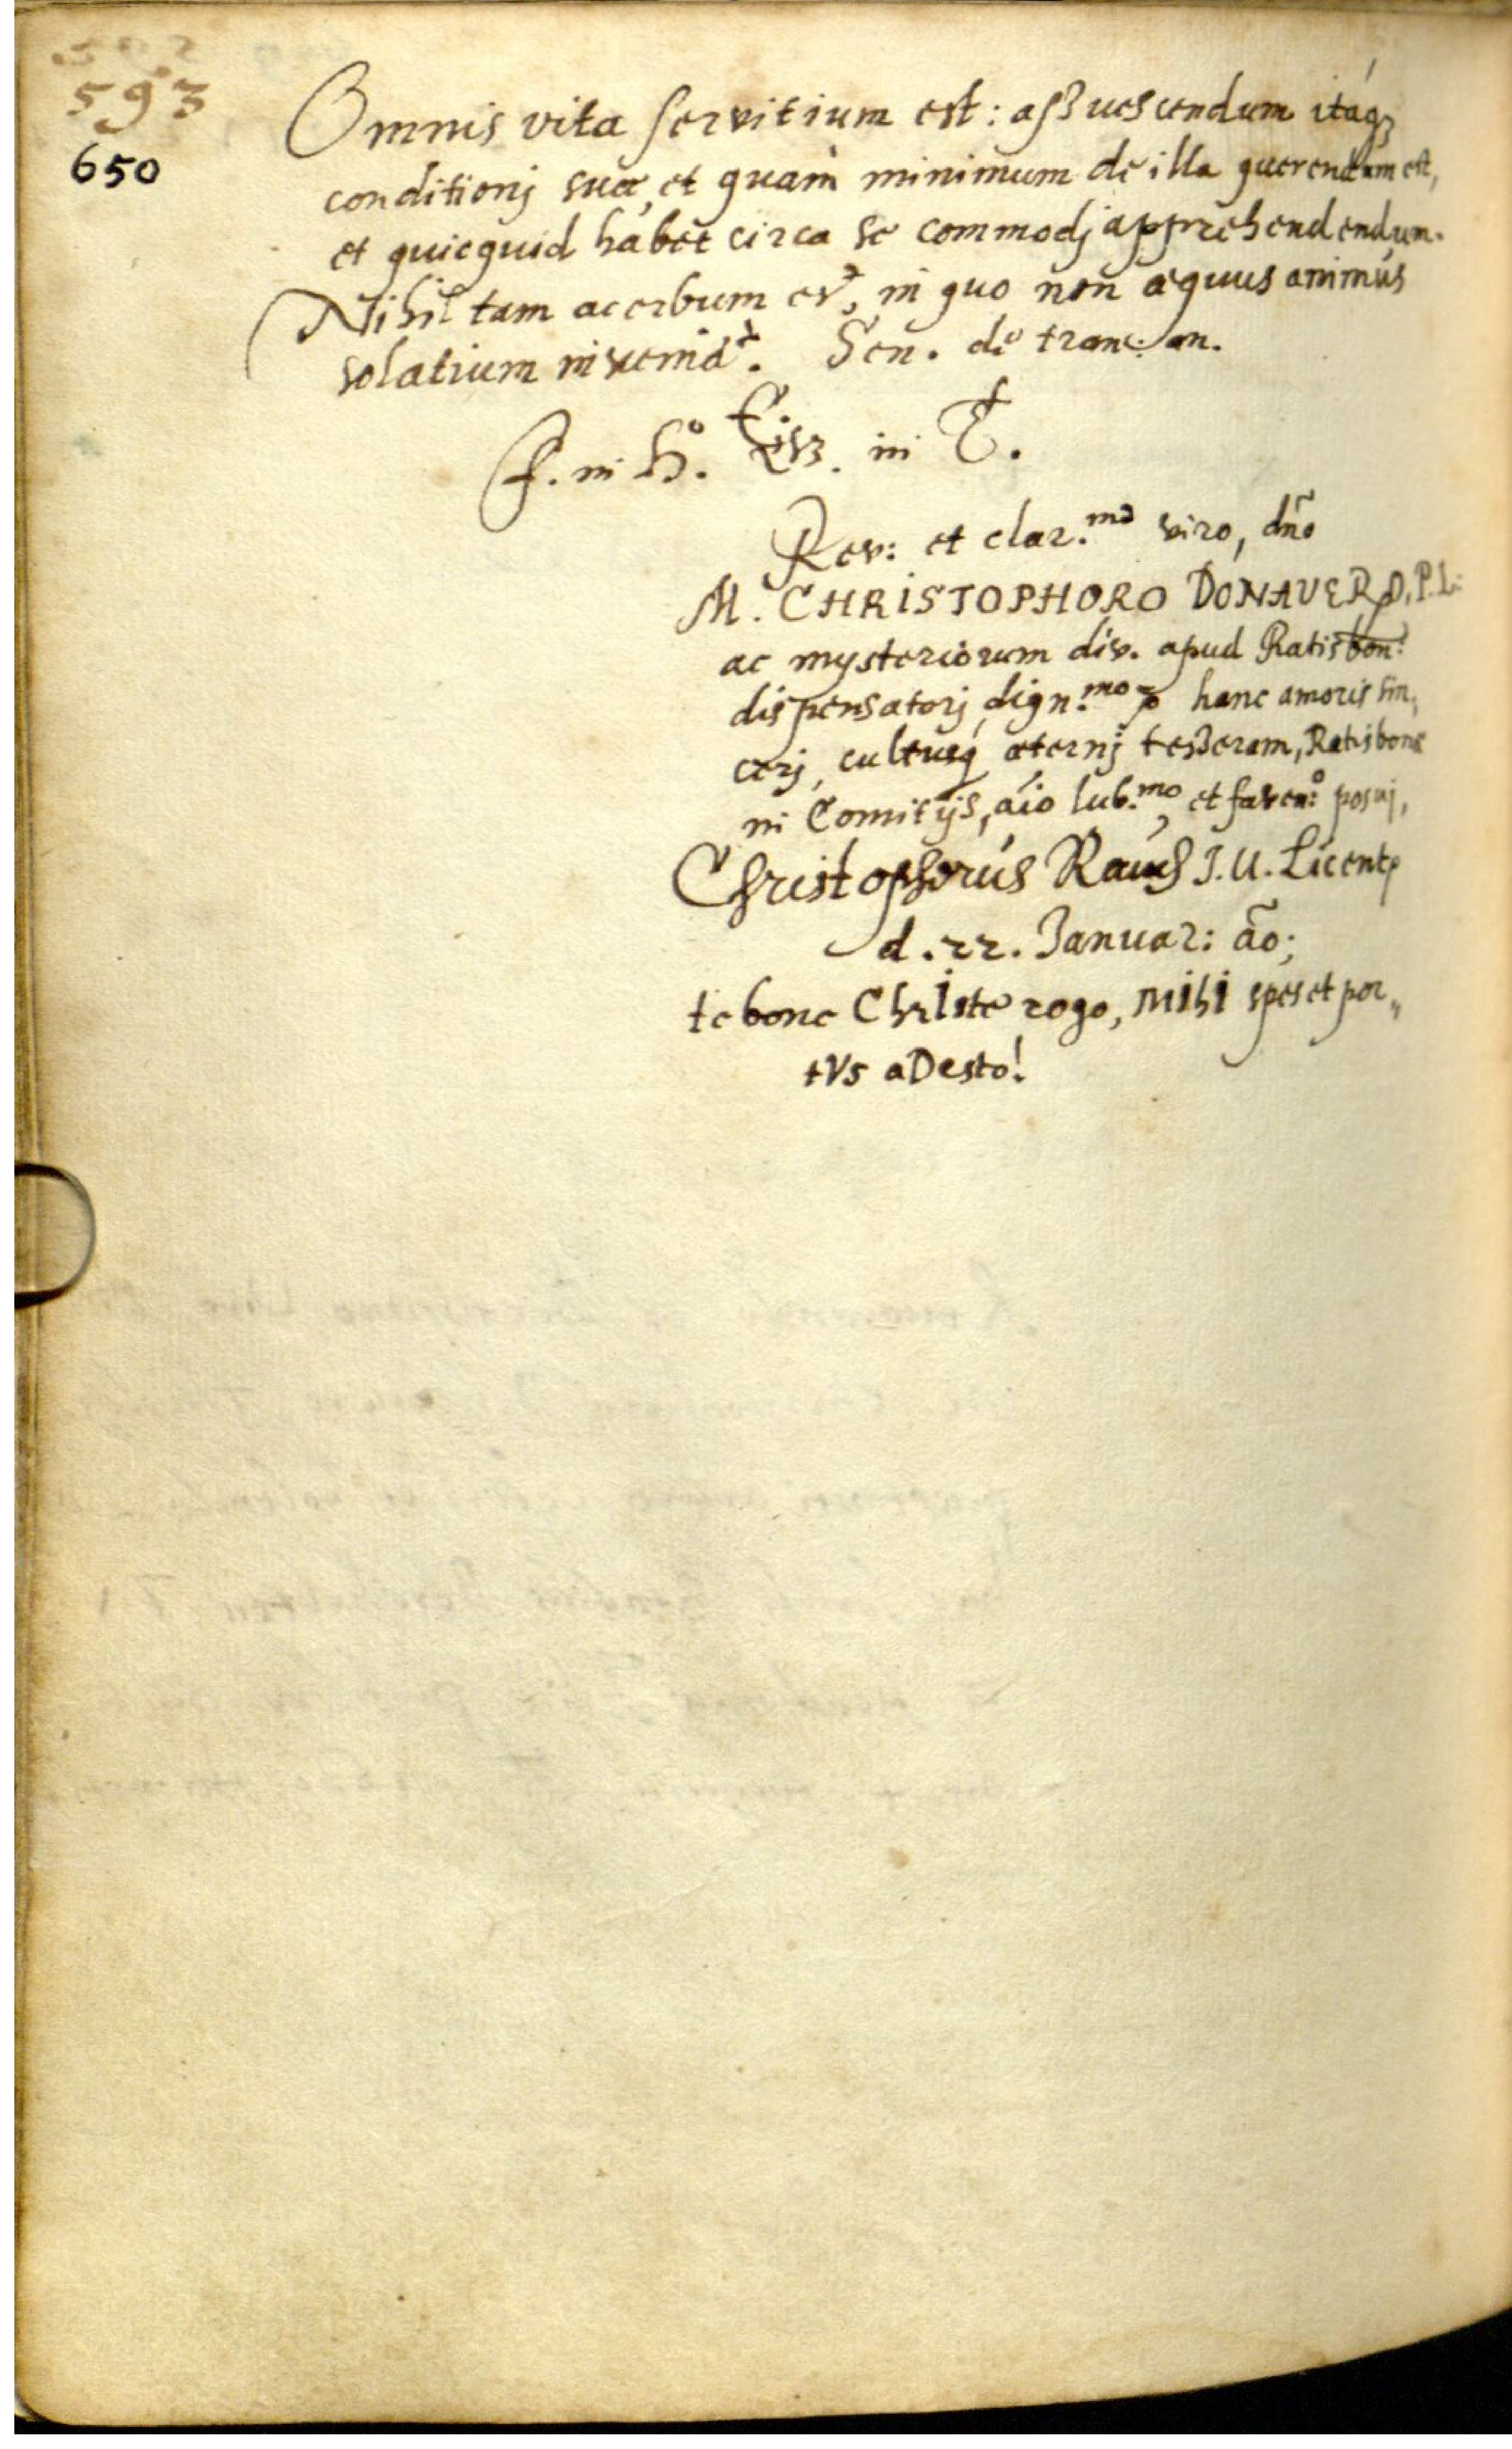 593
650
Omnis vita servitium est: aßuescendum itáq3
conditionj suæ, et quàm minimum de illa querendum est,
et quicquid habet circa se commodj apprehendendum.
Nihil tam acerbum est, in quo non æquus animus
solatium inveniat. Sen. de tranc: an.
F. in H.o in T.
Rev: et clar.mo viro, dño
M. CHRISTOPHORO DONAVERO, P.L.
ac mysteriorum div. apud Ratisbon:
dispensatorj dign.mo hanc amoris sin,
cerj, cultusq́ æternj teßeram, Ratisbonæ
in Comitijs, aio lub.mo, et faven:o posuj,
Christophorus Rauch J.U. Licent
d. 22. Januar: ão;
te bone ChrIste rogo, MIhI spes et por,,
tVs aDesto!